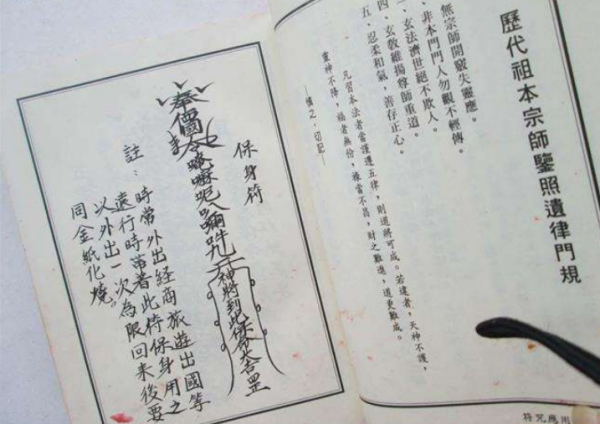 歷代祖本宗師鑒照遺律門規
無宗師開竅失靈應。
、非本門門人勿觀不輕傳。
、玄法濟世絕不欺人。
四、玄敎維揚尊師重道。
五、忍柔和氣，善存正心。
凡習本法者當謹遵五律，則道將可成。若違者，天神不護，
靈神不降，福者無份，祿當不昌，財之難進，道更難成。
——慎之、切記——
用應咒符
保身符
奉
神將到此保命
註：時常外出経商旅遊出國等
遠行時带著此符保身用之
以外出一次為限回来後要
同金紙化燒。